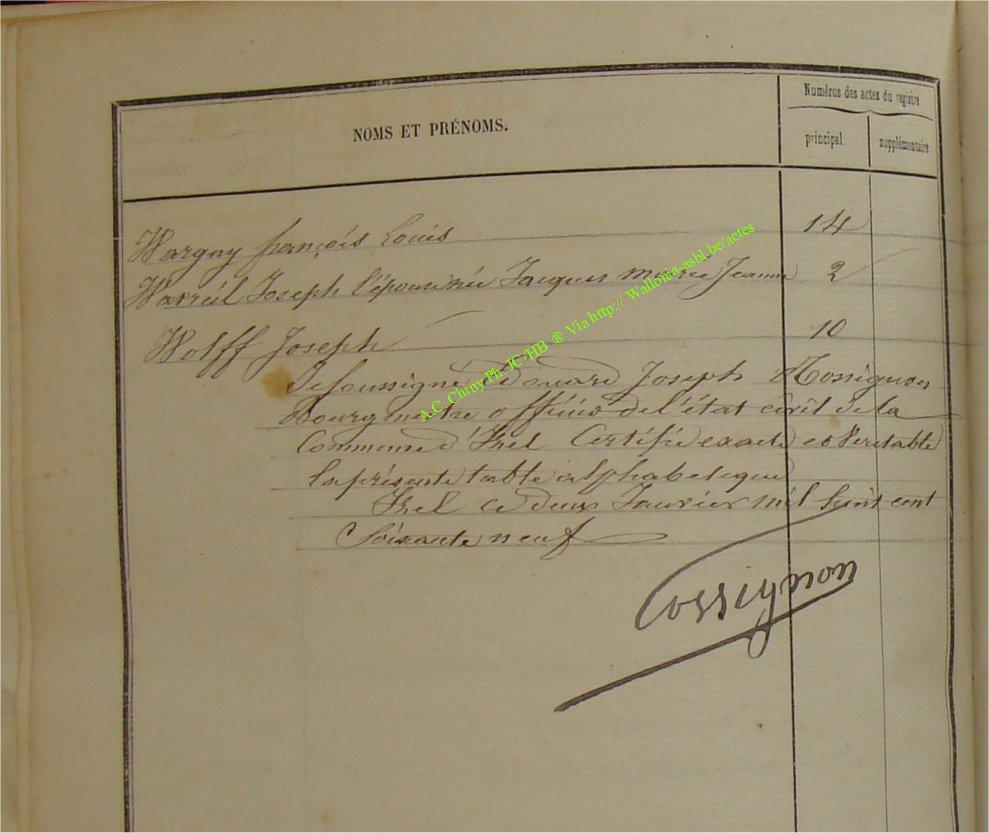 Numéros des actes du registre
NOMS ET PRÉNOMS.
principal. supplémentaire
Wargny françois Louis 14
Warréil Joseph l'épouse née Jacques Marie Jeanne 2
Wolff Joseph 10
Je soussigné Edouard Joseph Rossignon
Bourgmestre officier de l'état civil de la
Commune d'Izel Certifie exacte et Véritable
la présente table alphabetique
Izel ce deux Janvier mil huit cent
Soixante neuf
Rossignon
A.C. Chiny Ph-JC-HB ® Via http:// Wallonia-asbl.be/actes